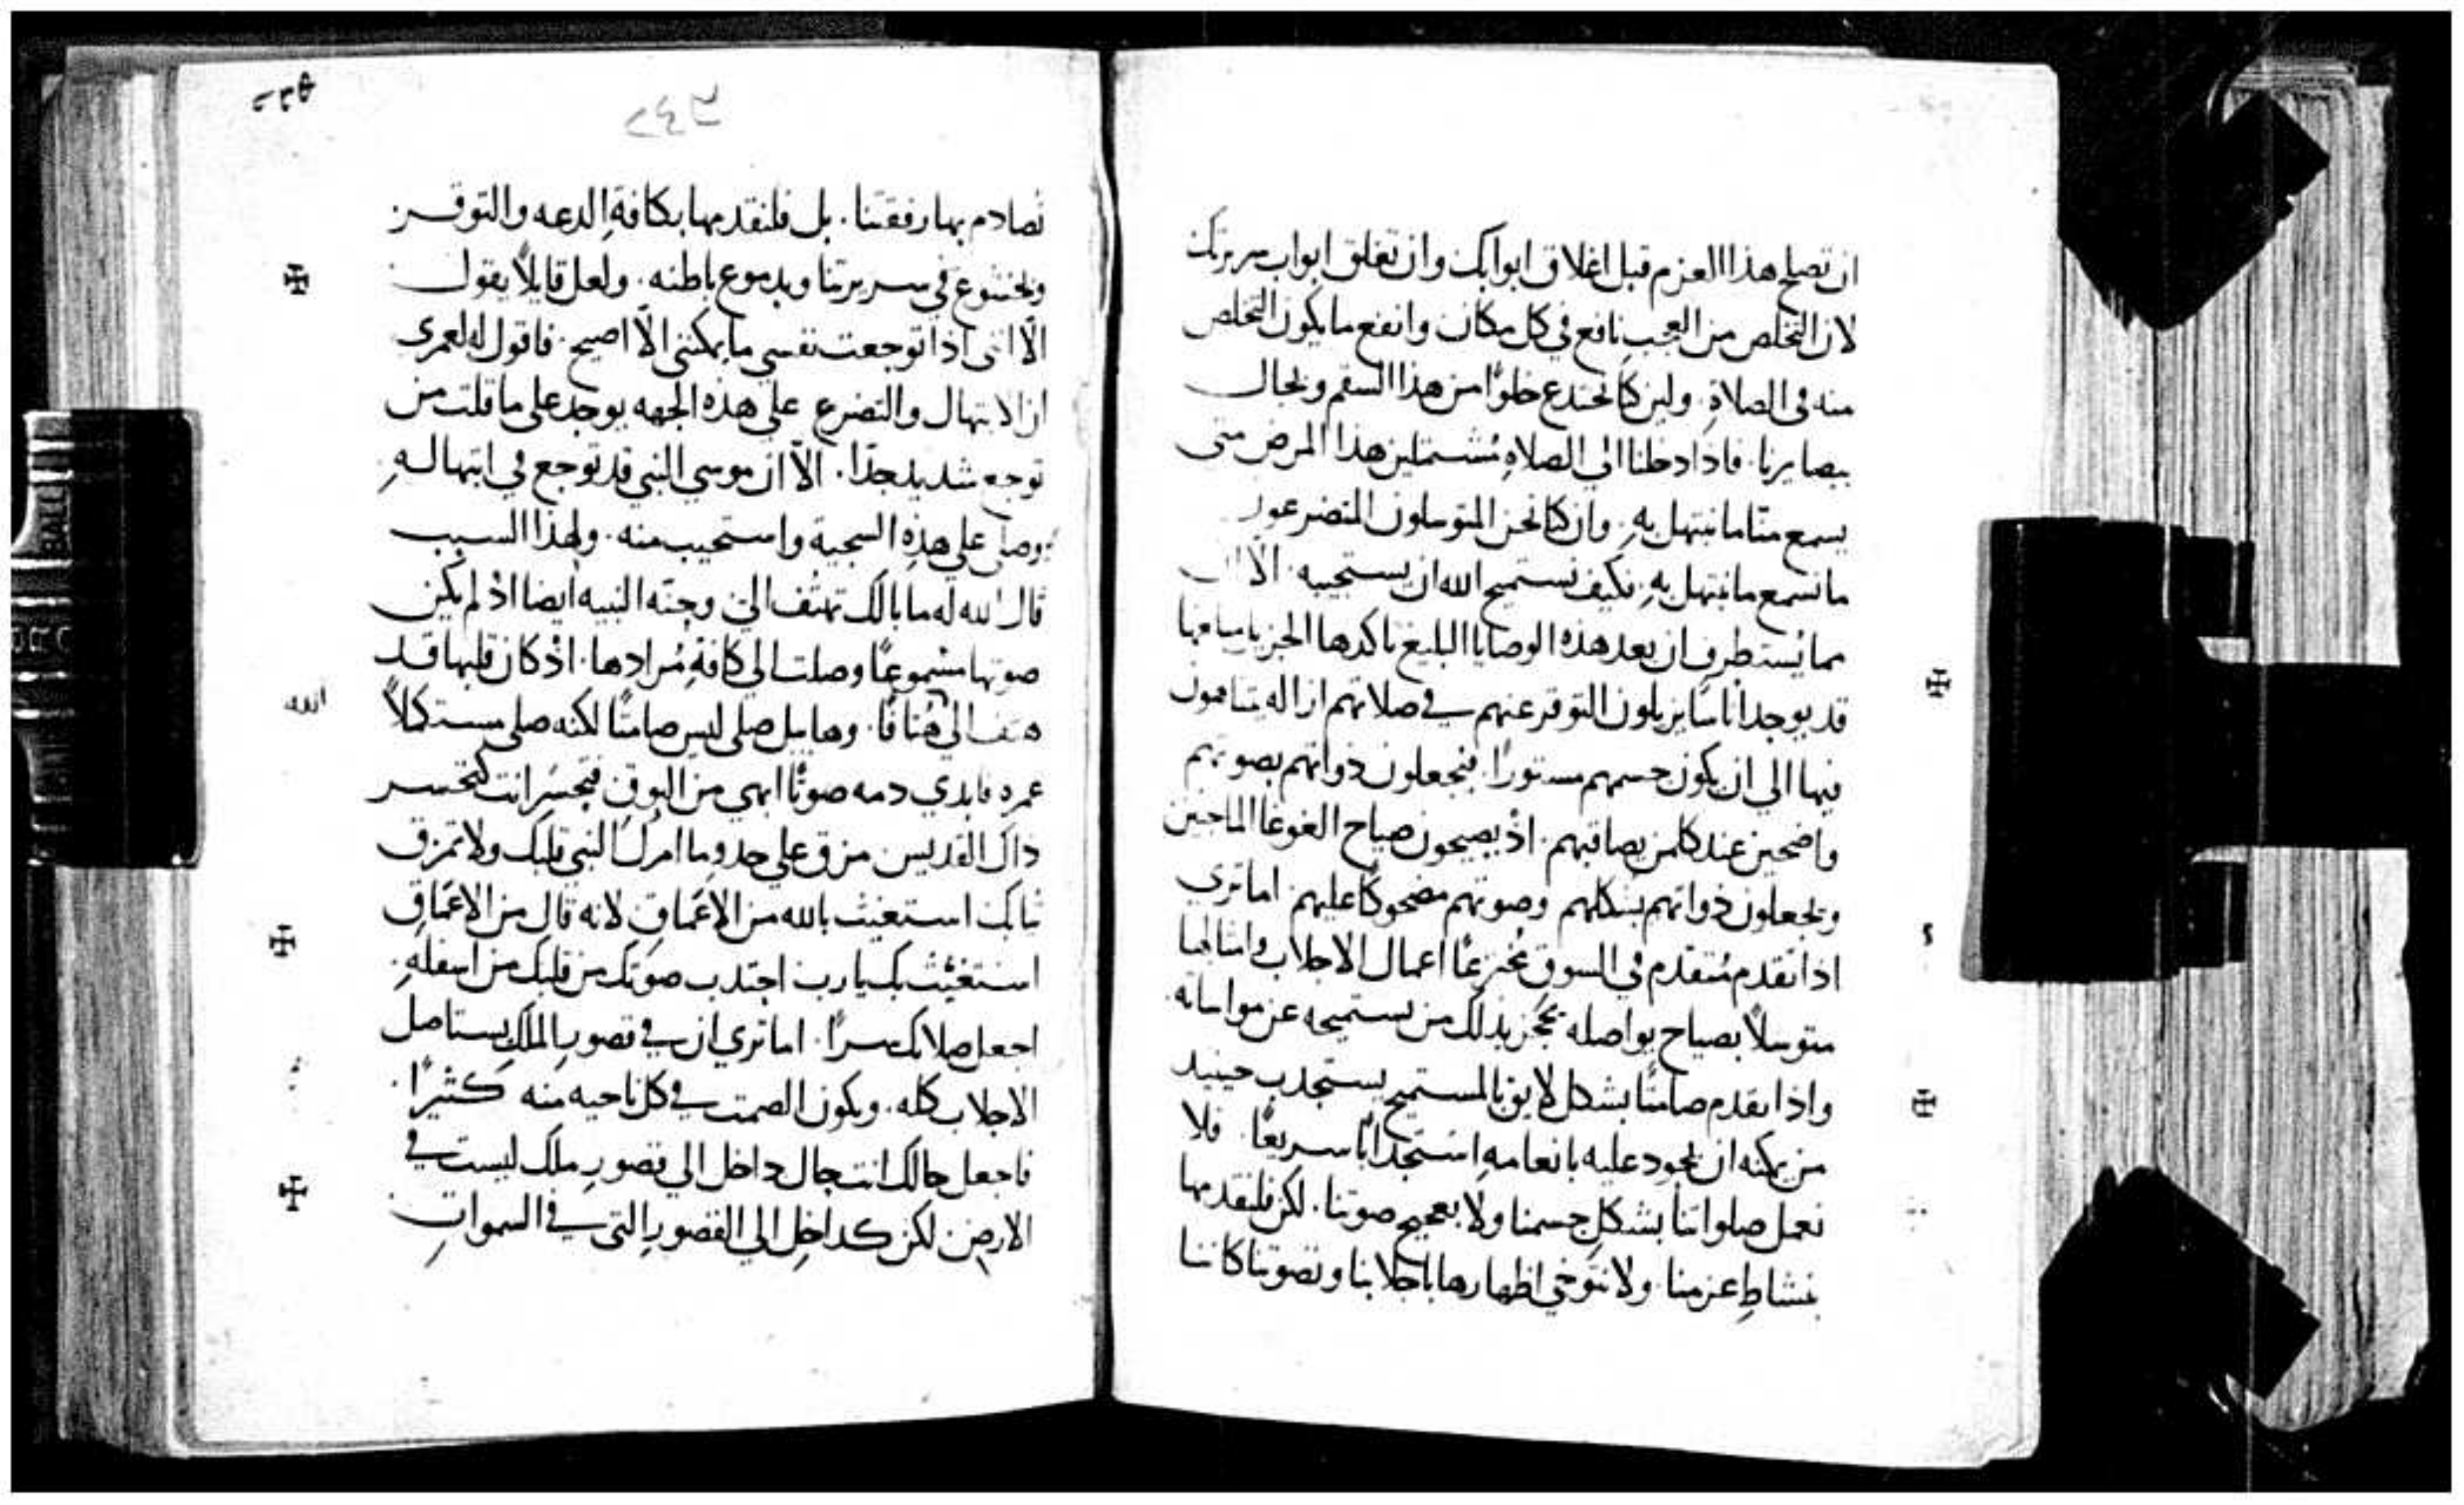 ان تصلح هذا العزم قبل اغلاق ابوابك وان تغلق ابواب سريرتك
لان التخلص من العجب نافع في كل مكان وانفع ما يكون التخلص
منه في الصلاةِ. ولين كنا نحتدع خلوًا من هذا السقم ونجال
ببصايرنا. فاذا دخلنا الي الصلاهِ مُشتملين هذا المرض متى
يسمع منّا ما نبتهل بهِ. وان كنا نحن المتوسلون المتضرعون
ما نسمع ما نبتهل بهِ. فكيف نستميح الله ان يستجيبه. الا ان
مما يُستطرف ان بعد هذه الوصايا البليغ تاكدها الجزيل
قد يوجد اناسًا يزيلون التوقر عنهم في صلاتهم ازاله يتناهون
فيها الي ان يكون جسمهم مستورًا. فيجعلون ذواتهم بصوتهم
واضحين عند كلمن يصاقبهم. اذ يصيحون صياح الغوغا الماجين
ويجعلون ذواتهم بشكلهم وصوتهم مضحوكًا عليهم. اما تري
اذا تقدم مُتقدم في السوق مُخترعًا اعمال الاجلاب وامثالها
متوسلاً بصياح يواصله يحجز بذلك من يستميحه عن مواساته
واذا تقدم صامتًا بشكل لايق بالمستميح يستجدب حينيد
من يمكنه ان يجود عليه بانعامهِ استجدابًا سريعًا. فلا
نعمل صلواتنا بشكلِ جسمنا ولا بعجيج صوتنا. لكن فلنقدمها
بنشاطِ عزمنا. ولا نتوخي اظهارها باجلابنا وتصوتنا كاننا
٥٢٢
نُصادم بها رفقتنا. بل فلنقدمها بكافةِ الدعه والتوقر
وبخشوع في سريرتنا وبدموع باطنه. ولعل قايلاً يقول
الّا انني اذا توجعت نفسي ما يمكنني الّا اصيح. فاقول له لعمري
ان الابتهال والتضرع علي هذه الجهه يوجد علي ما قلت من
توجع شديد جدًا. الّا ان موسي النبي قد توجع في ابتهالهِ
وصلي علي هذهِ السجية واستجيب منه. ولهذا السبب
قال الله له ما بالك تهتف الي وحنه النبيه ايضا اذ لم يكن
صوتها مسموعًا وصلت الي كافةِ مُرادها. اذ كان قلبها قد
الله
هتف الي هُتافًا. وهابيل صلي ليس صامتًا لكنه صلي مستكملاً
عمره فابدي دمه صوتًا ابهي من البوقِ فتحسَر انت كتحسر
ذاك القديس مزق علي حدو ما امرك النبي قلبك ولا تمزق
ثيابك استغيث بالله من الاعماقِ لانه قال من الاعماقِ
استغثت بك يا رب اجتدب صوتك من قلبك من اسفلهِ.
اجعل صلاتك سرًا. اما تري ان في قصورِ الملكِ يستاصل
الاجلاب كله. ويكون الصمت في كل ناحيه منه كثيرًا.
فاجعل حالك انت حال داخل الي قصورِ ملك ليست في
الارض لكن كداخِل الي القصورِ التي في السمواتِ